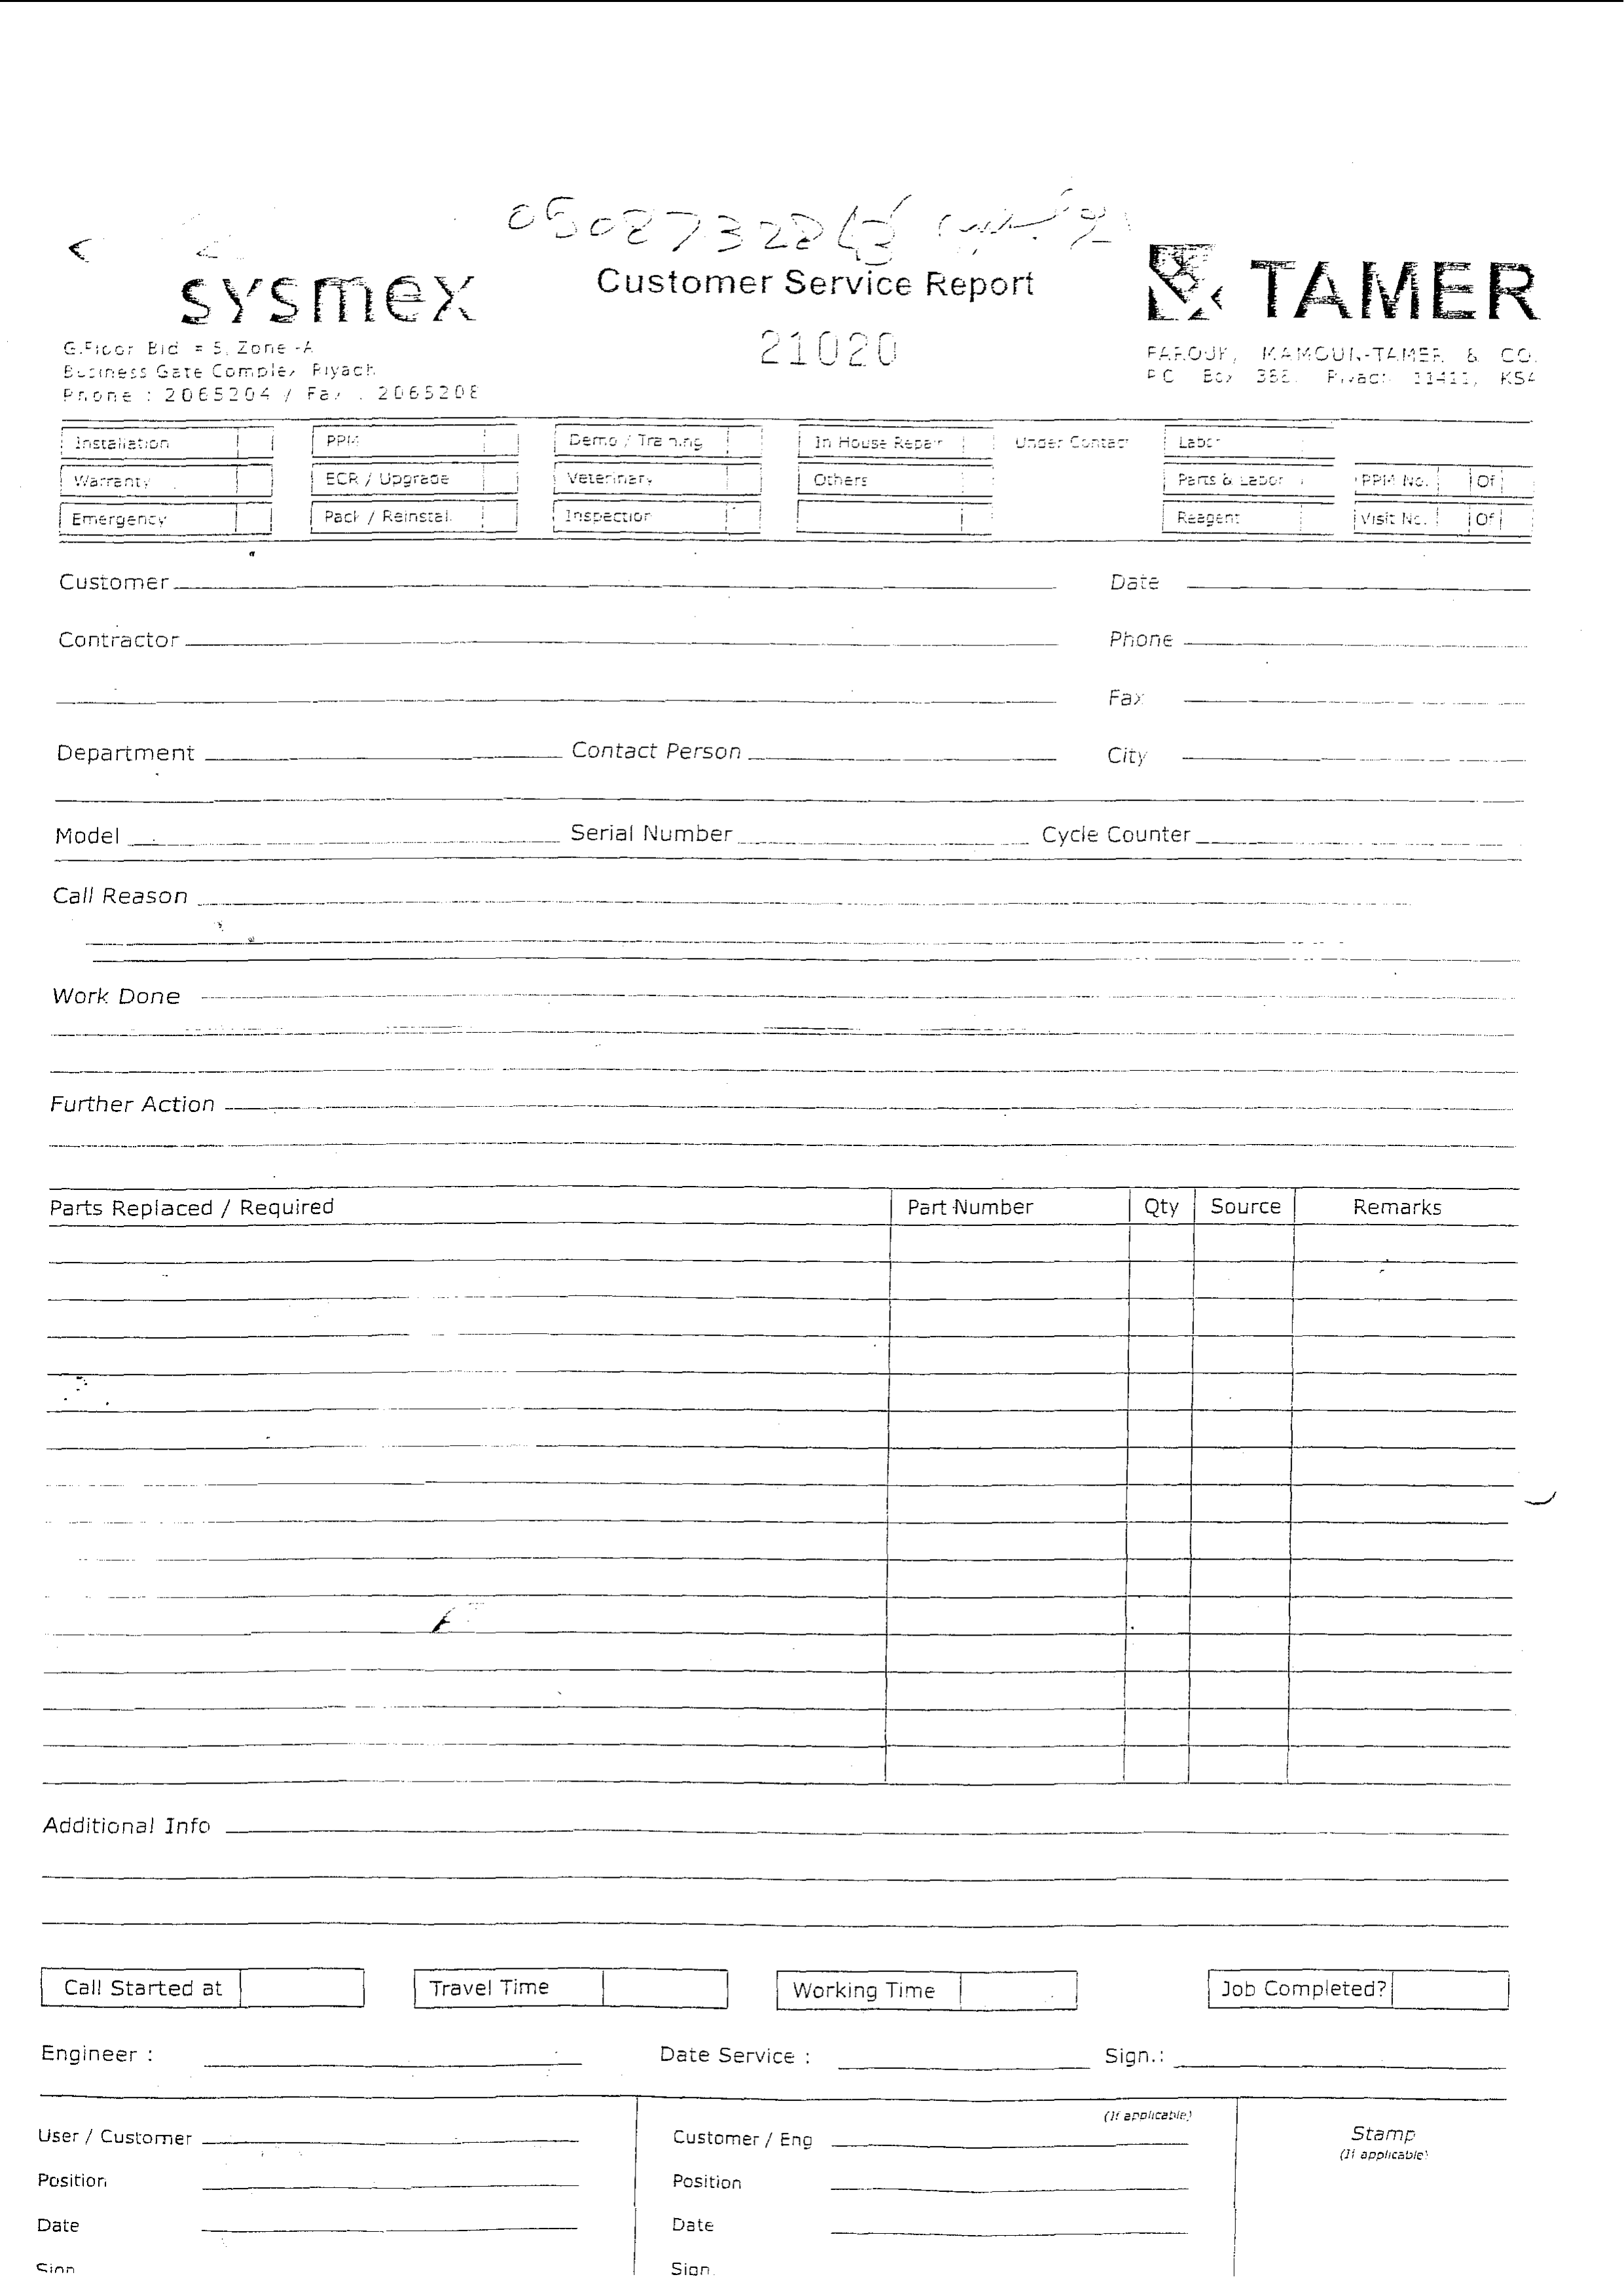 sysmex
Customer Service Report
TAMER
21020
G.Floor Bld # 5, Zone -A
Business Gate Complex Riyadh
Phone : 2065204 / Fax : 2065208
FAROUK, MAMOUN-TAMER & CO.
P.O Box 388. Riyadh 11411, KSA
Installation PPM Demo / Training In House Repair Under Contact Labor
Warranty ECR / Upgrade Veterinary Others Parts & Labor PPM No. Of
Emergency Pack / Reinstal. Inspection Reagent Visit No. Of
Customer Date
Contractor Phone
Fax
Department Contact Person City
Model Serial Number Cycle Counter
Call Reason
Work Done
Further Action
Parts Replaced / Required Part Number Qty Source Remarks
Additional Info
Call Started at Travel Time Working Time Job Completed?
Engineer : Date Service : Sign.:
(If applicable)
User / Customer Customer / Eng Stamp
(If applicable)
Position Position
Date Date
Sign Sign.